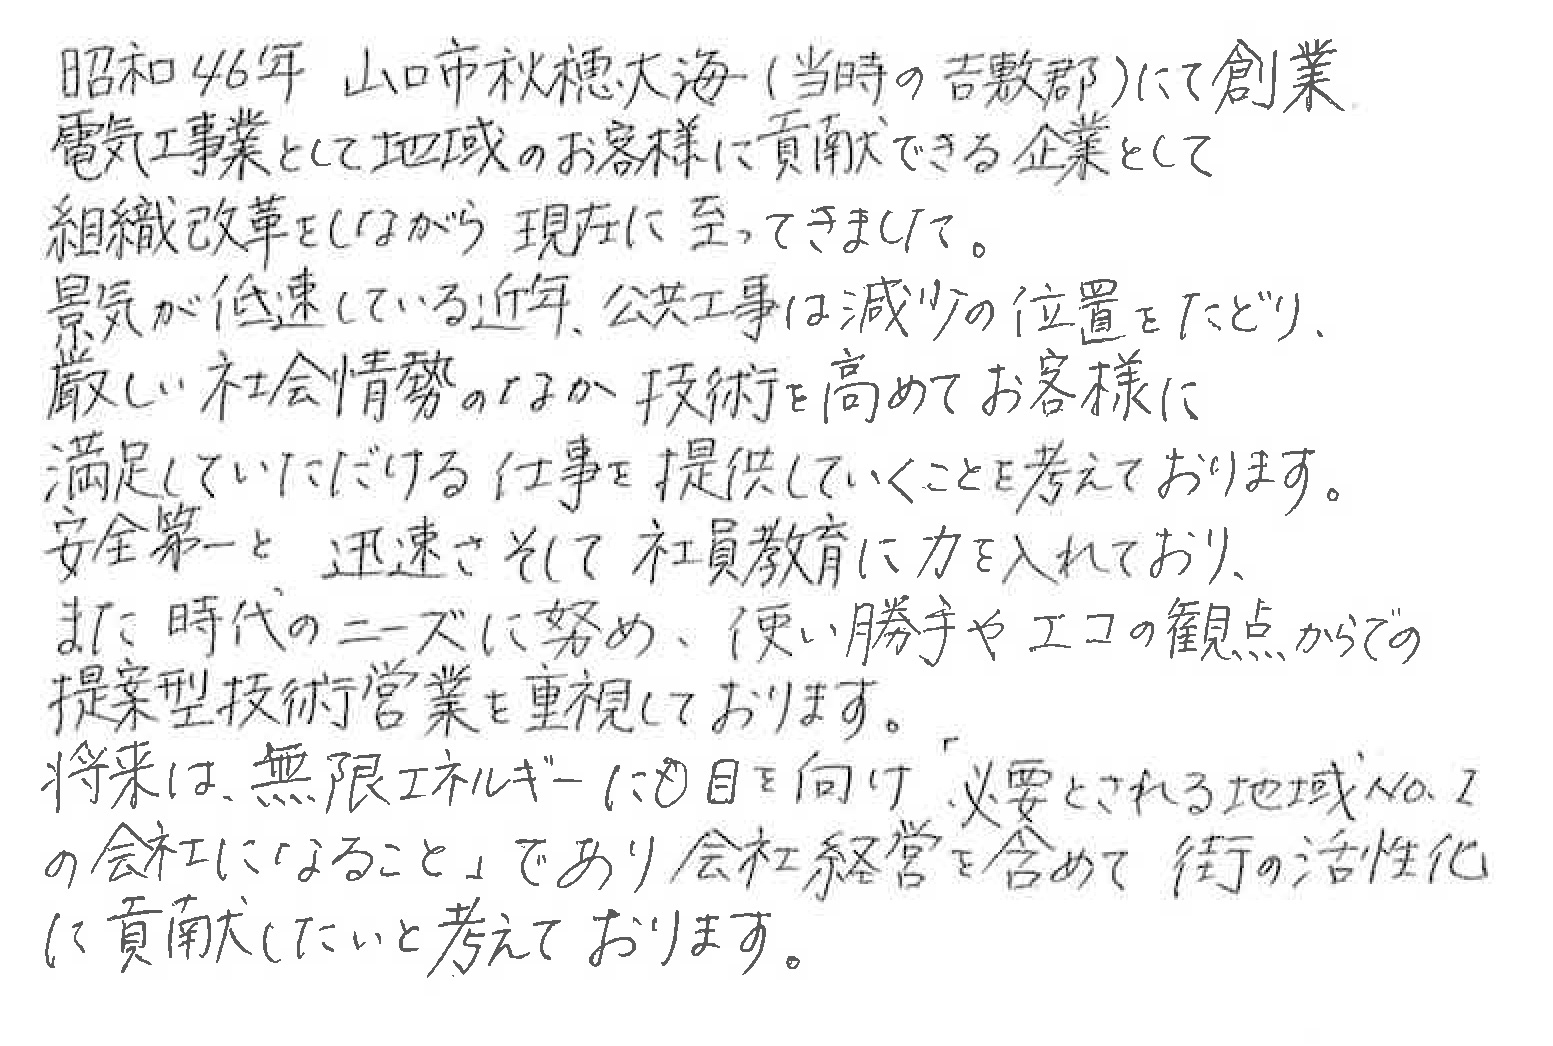 昭和46年 山口市秋穂大海(当時の吉敷郡)にて創業
電気工事業として地域のお客様に貢献できる企業として
組織改革をしながら 現在に 至ってきました。
景気が低速している近年、公共工事は減少の位置をたどり、
厳しい社会情勢のなか 技術を高めてお客様に
満足していただける仕事を提供していくことを考えております。
安全第一と 迅速さそして社員教育に力を入れており、
また時代のニーズに努め、使い勝手やエコの観点からでの
提案型技術営業を重視しております。
将来は、無限エネルギーにも目を向け「必要とされる地域No.1
の会社になること」であり会社経営を含めて 街の活性化
に貢献したいと考えております。